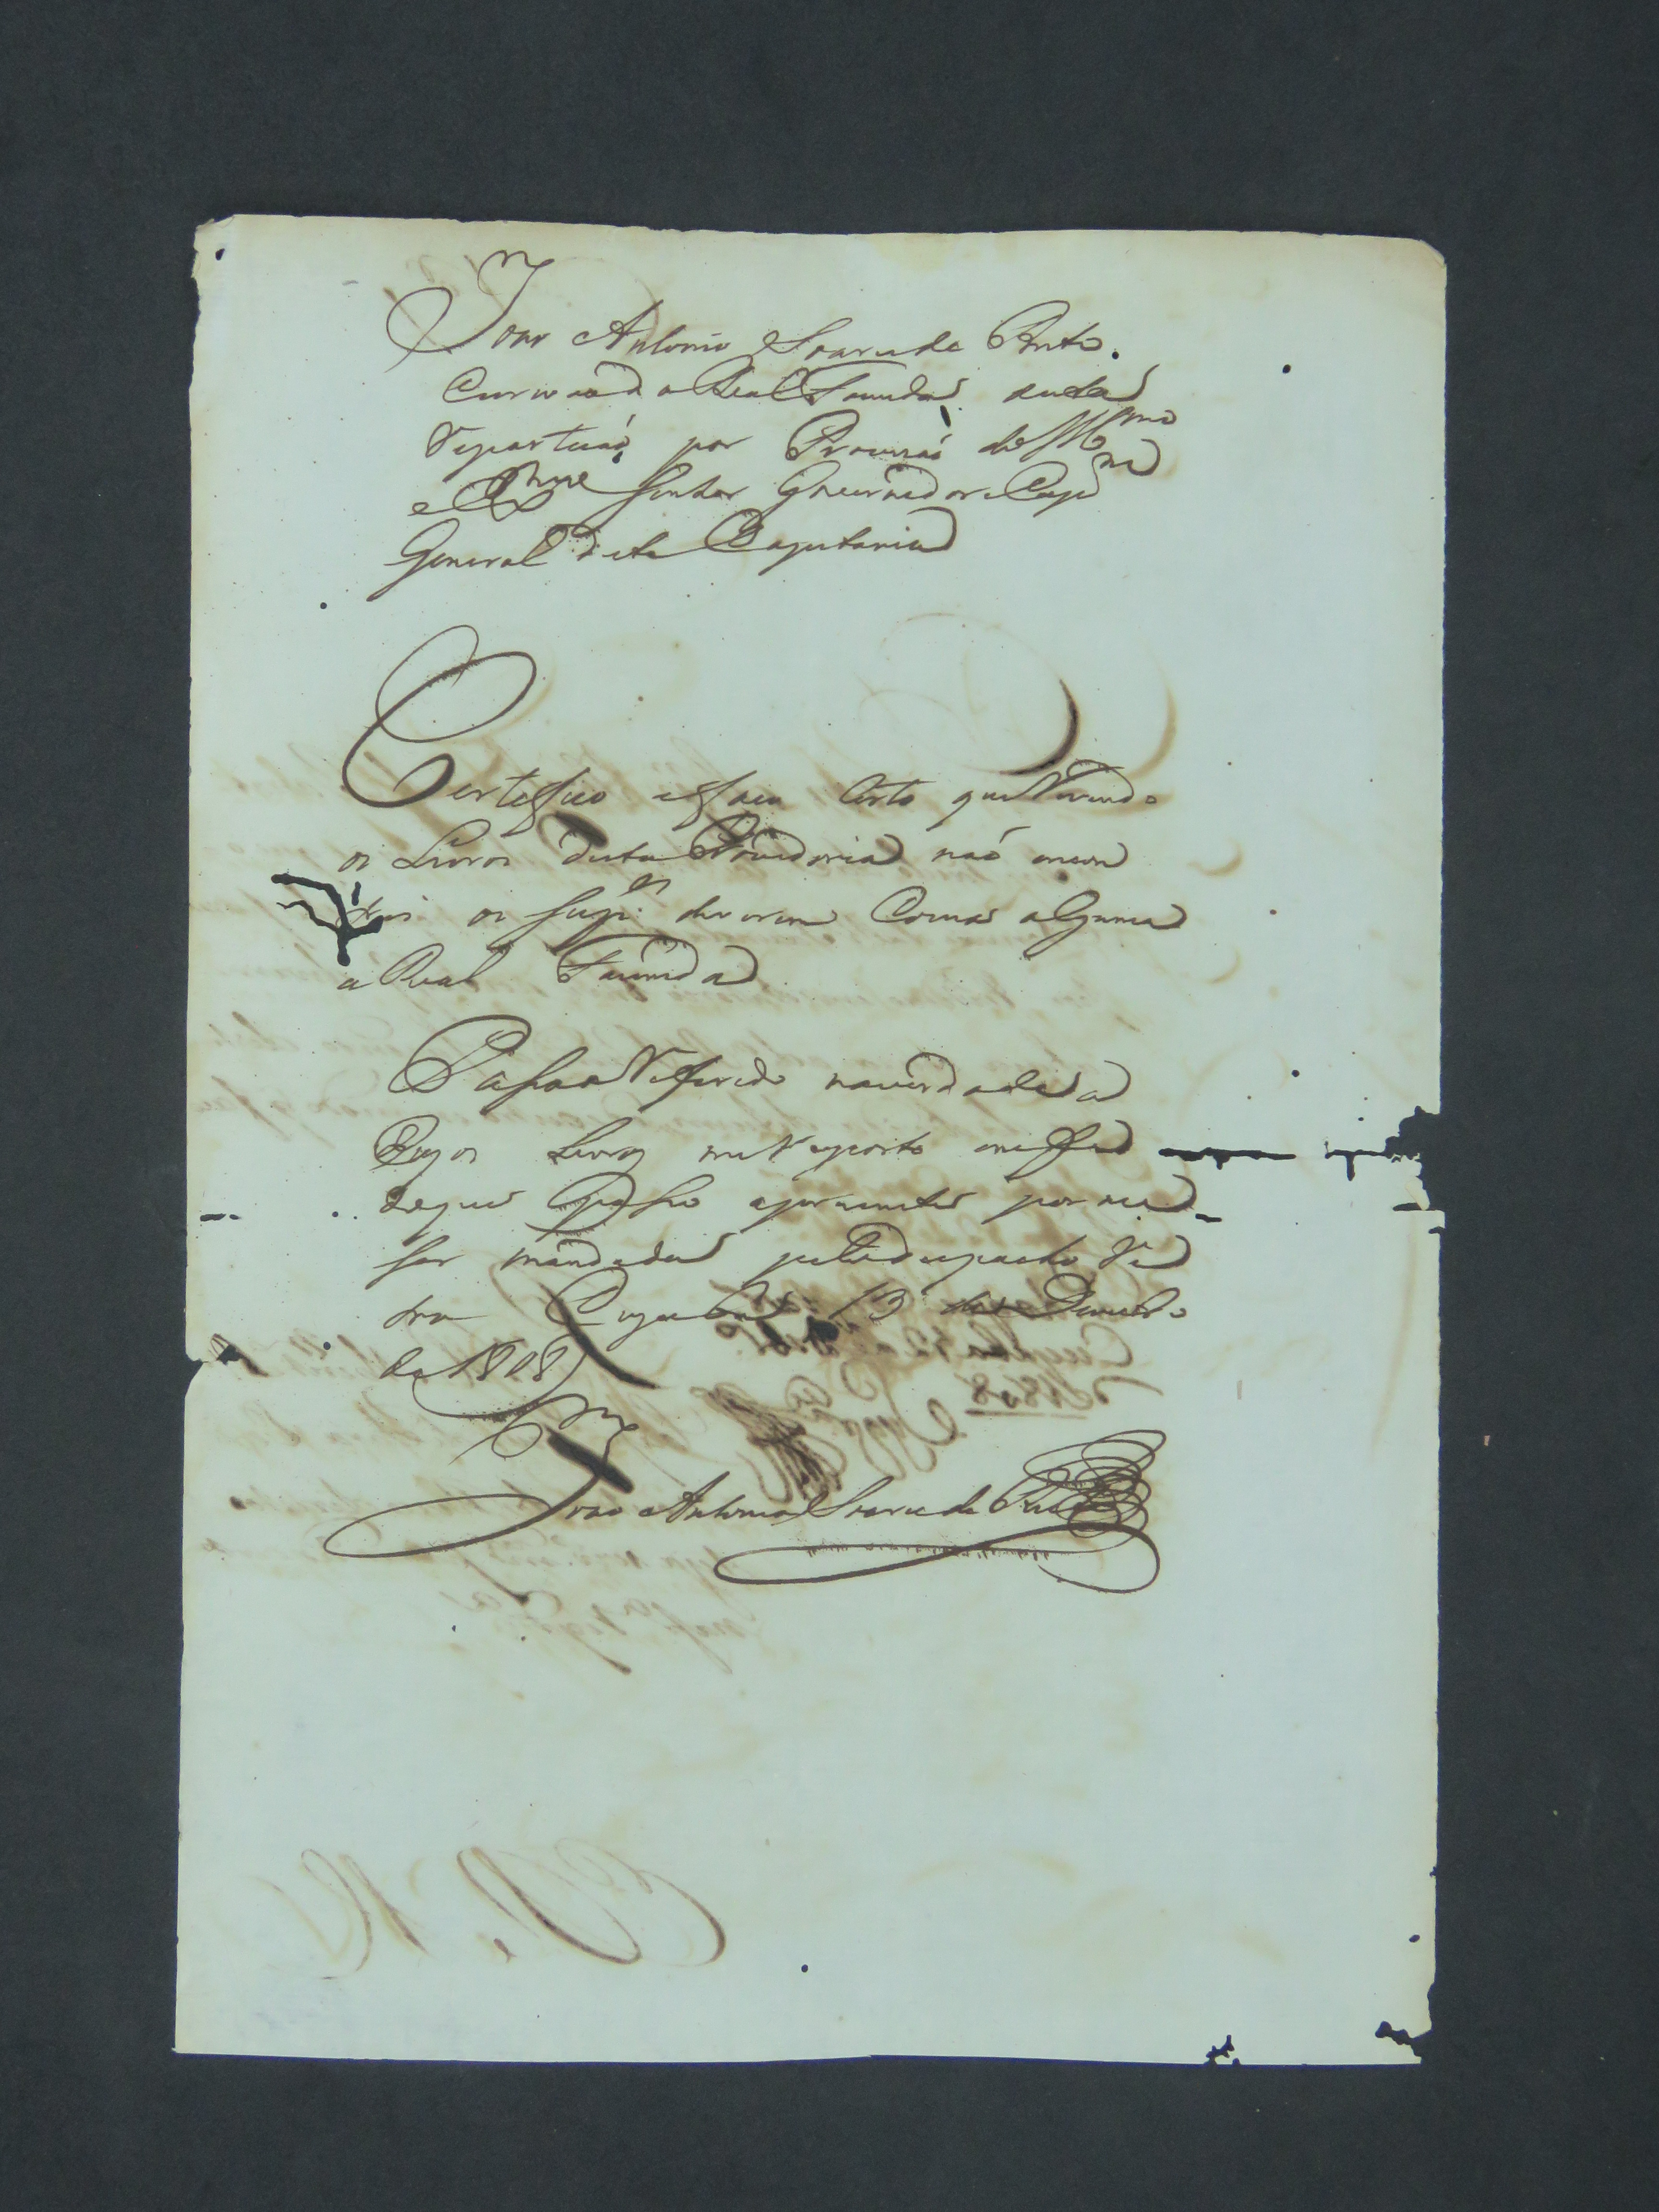 João Antonio Soares de Brito.
Escrivaõ da Real Fazenda nesta
Repartiçaõ por Provizaõ do Illmo
e Exmo Senhor Governador e Capm
General desta Capitania
Certefico e faço Certo que Revendo
os Livros desta Provedoria naõ encon
trei os Supes deverem Couza alguma
a Real Fazenda
Passa o Referido na verdade e a
Cujos Livros me Reporto em fé
de que passo a prezente por me
ser mandada pelo despacho Re
tro Cuyaba 13 de
de 1808
João Antonio Soares de Brito